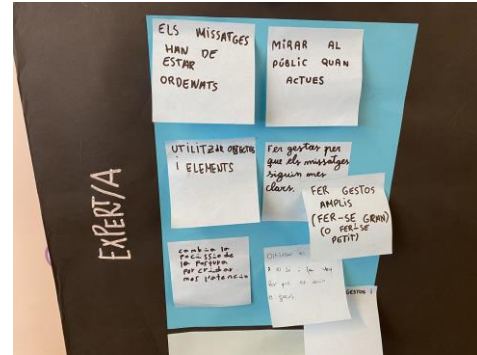 EXPERT/A
ELS MISSATGES
HAN DE
ESTAR
ORDENATS
MIRAR AL
PÚBLIC QUAN
ACTUES
UTILITZAR OBJECTES
I ELEMENTS
Fer gestos per
que els missatges
siguin mes
clars.
FER GESTOS
AMPLIS
(FER-SE GRAN)
(O FER-SE
PETIT)
combia la
de la
per cridar
mes potencia
GESTOS I